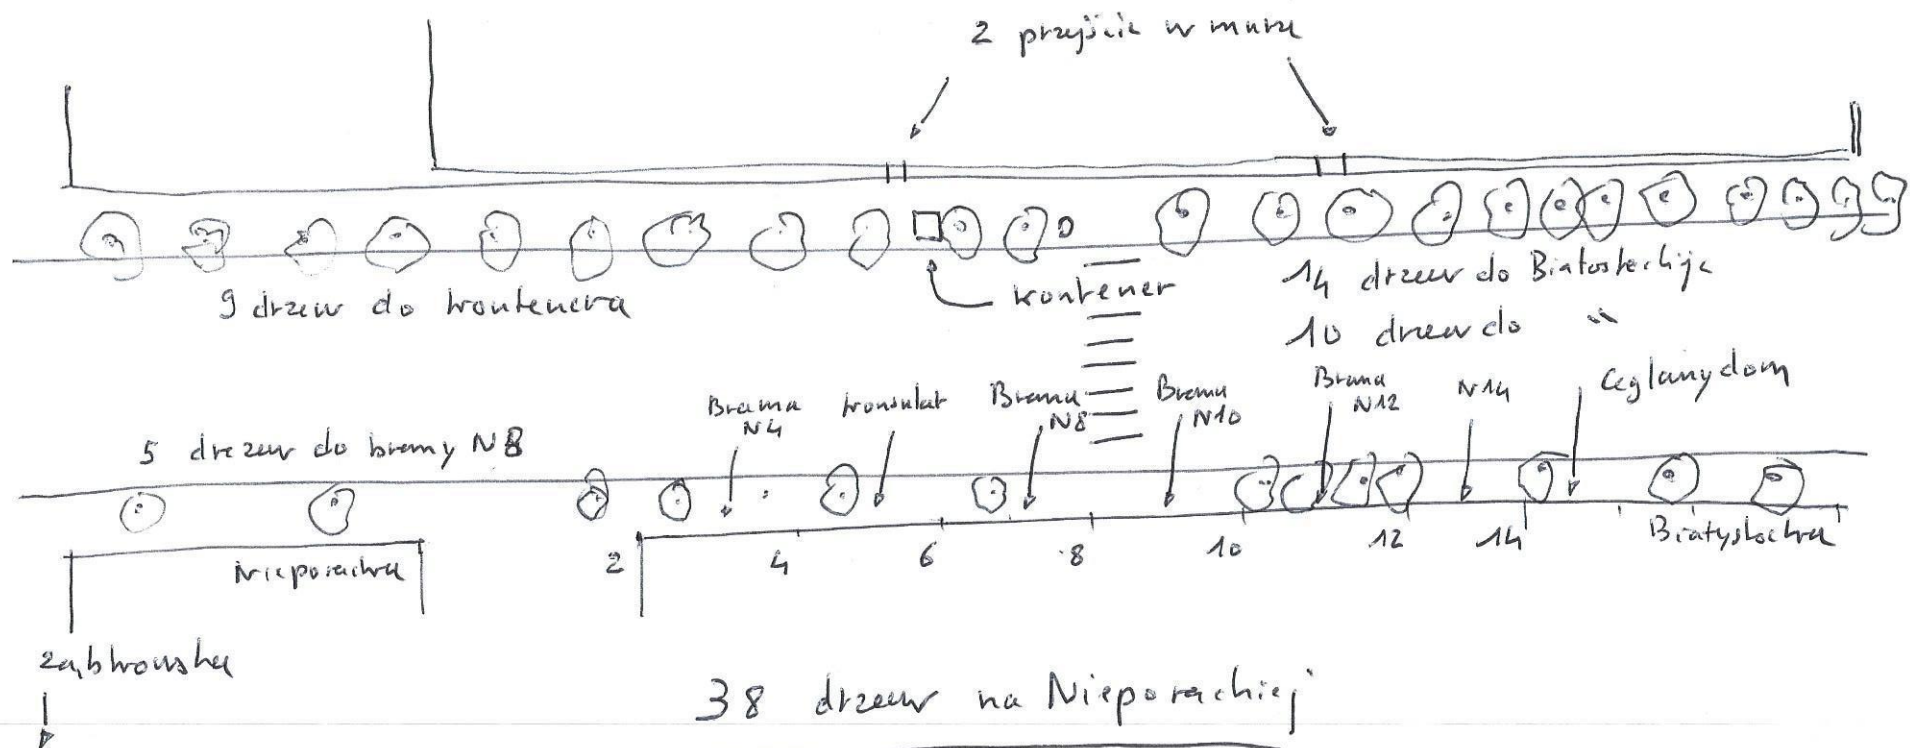 2 przejście w murze
9 drzew do kontenera
kontener
14 drzew do Białostockiej
10 drzew do "
Brama N4
konsulat
Brama N8
Brama N10
Brama N12
N14
Ceglany dom
5 drzew do bramy N8
Nieporęcka
2
4
6
8
10
12
14
Białystocka
Ząbkowska
38 drzew na Nieporęckiej